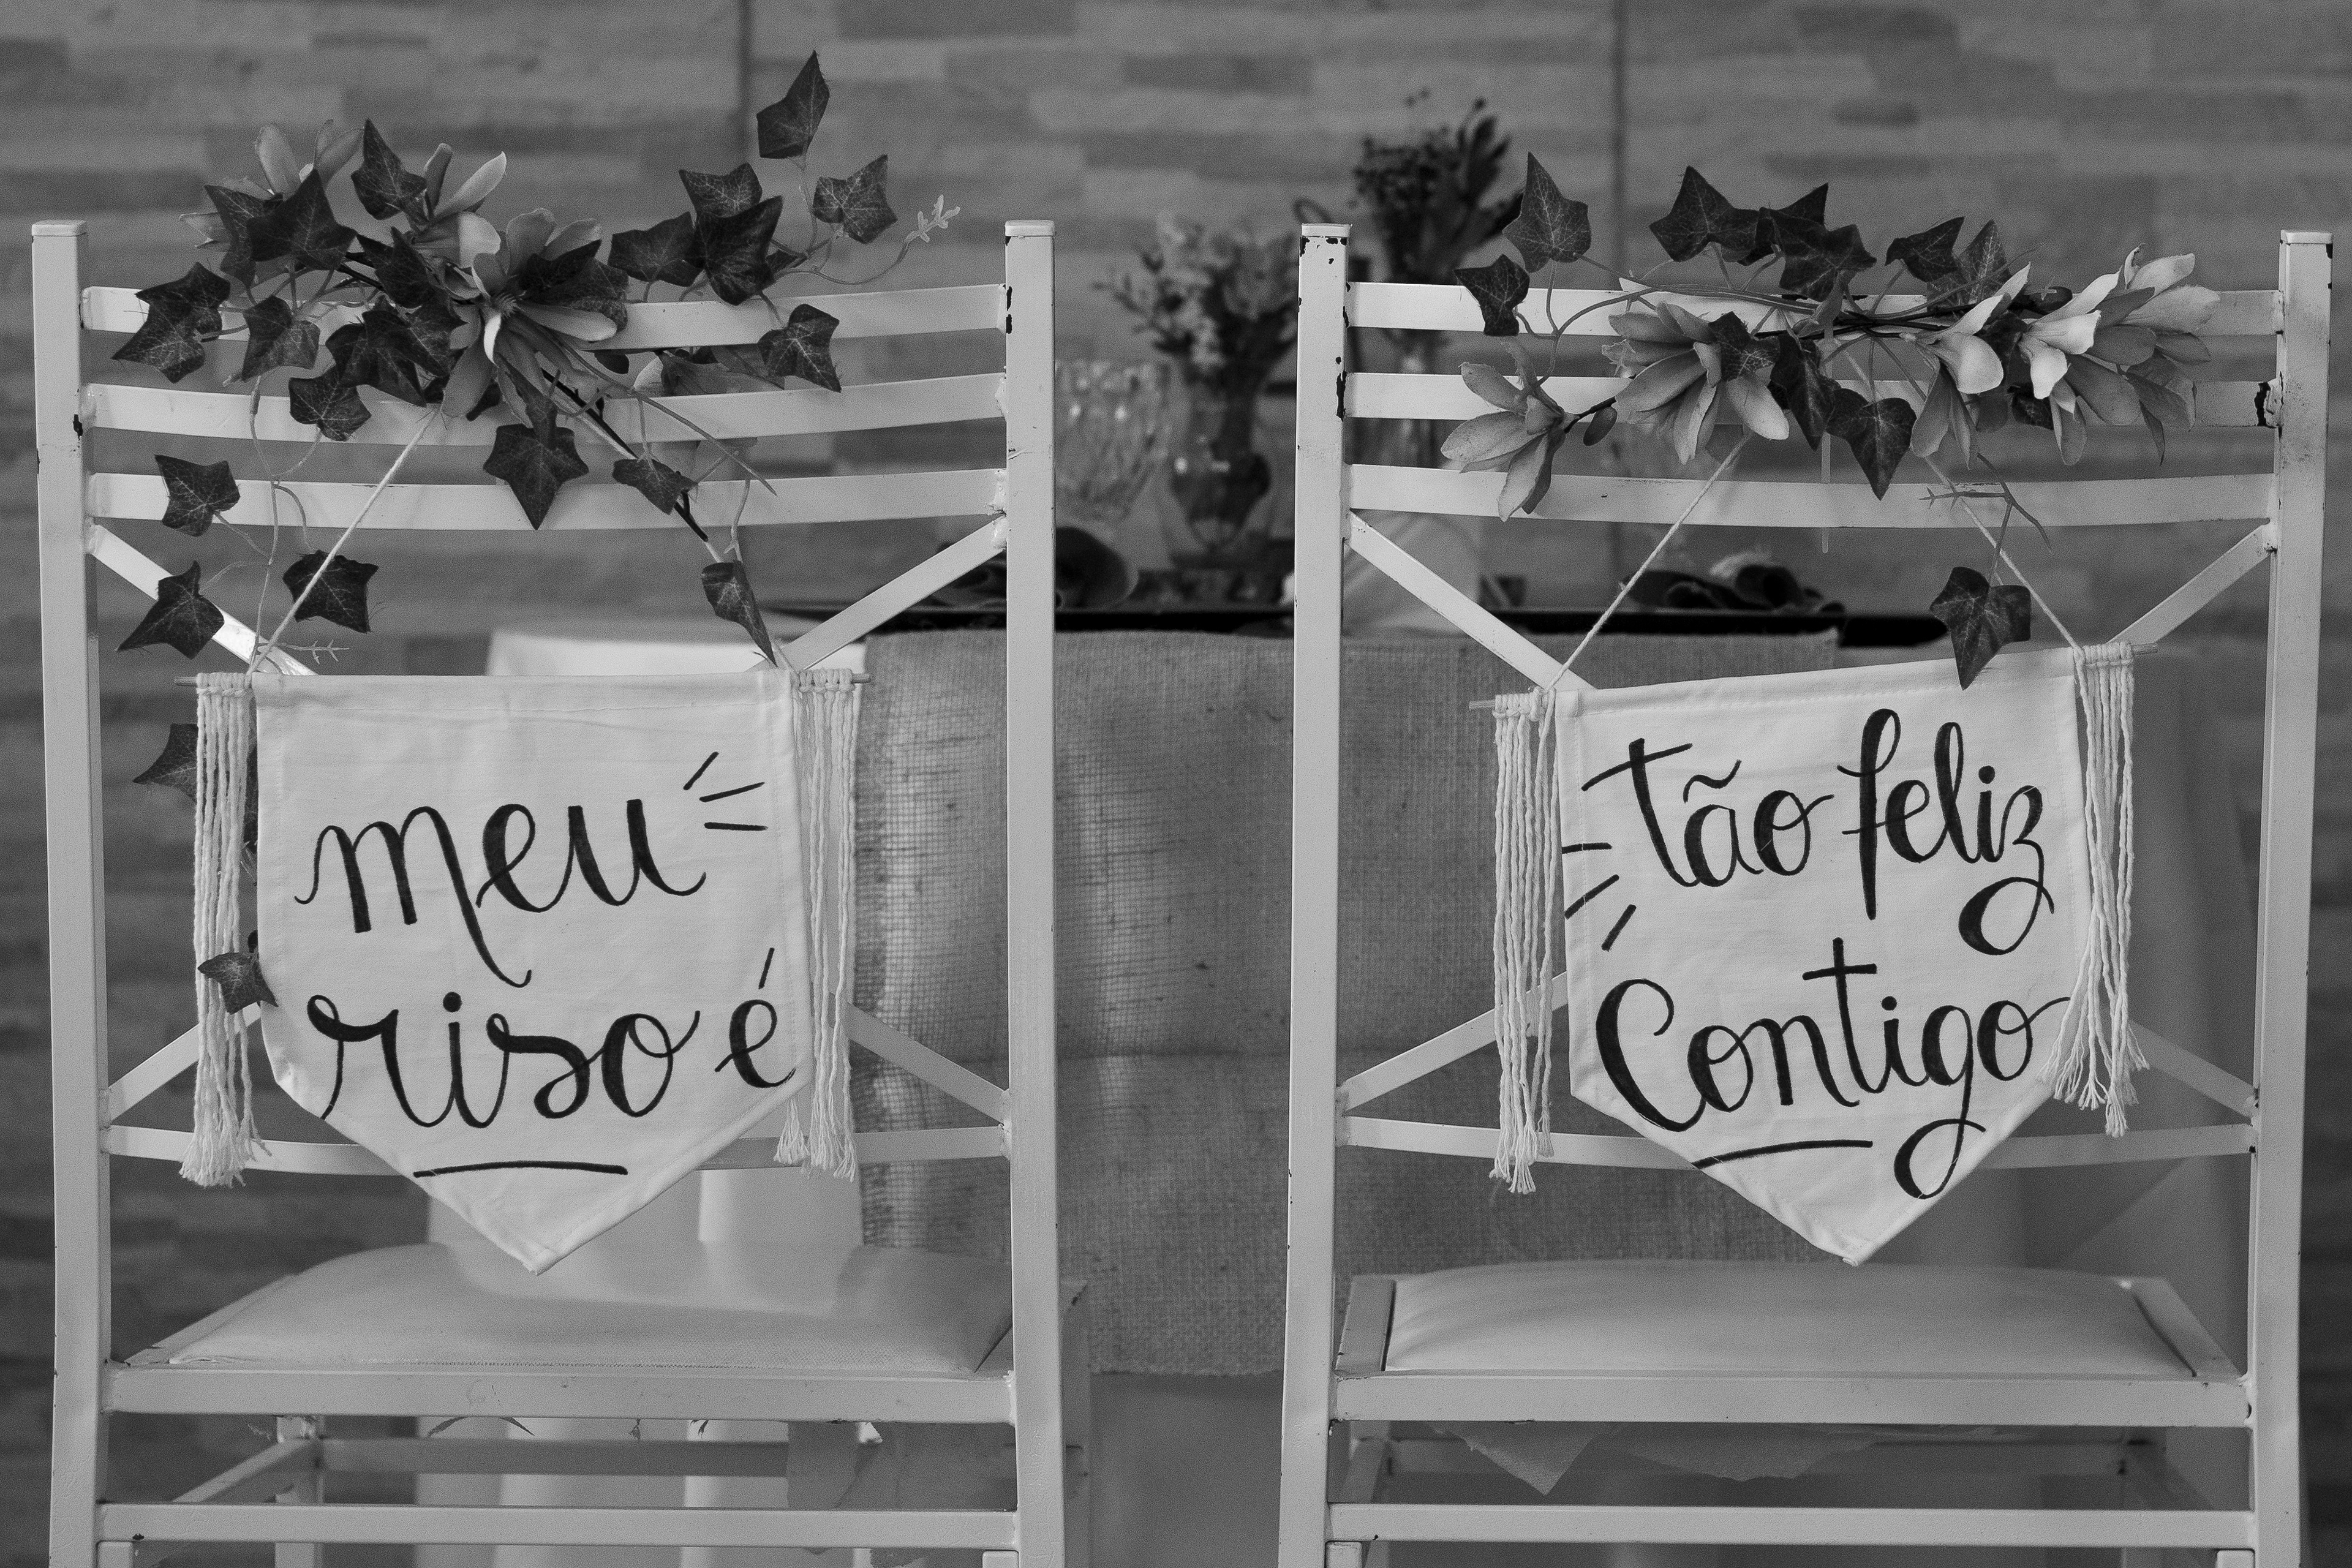 meu
riso é
tão feliz
Contigo